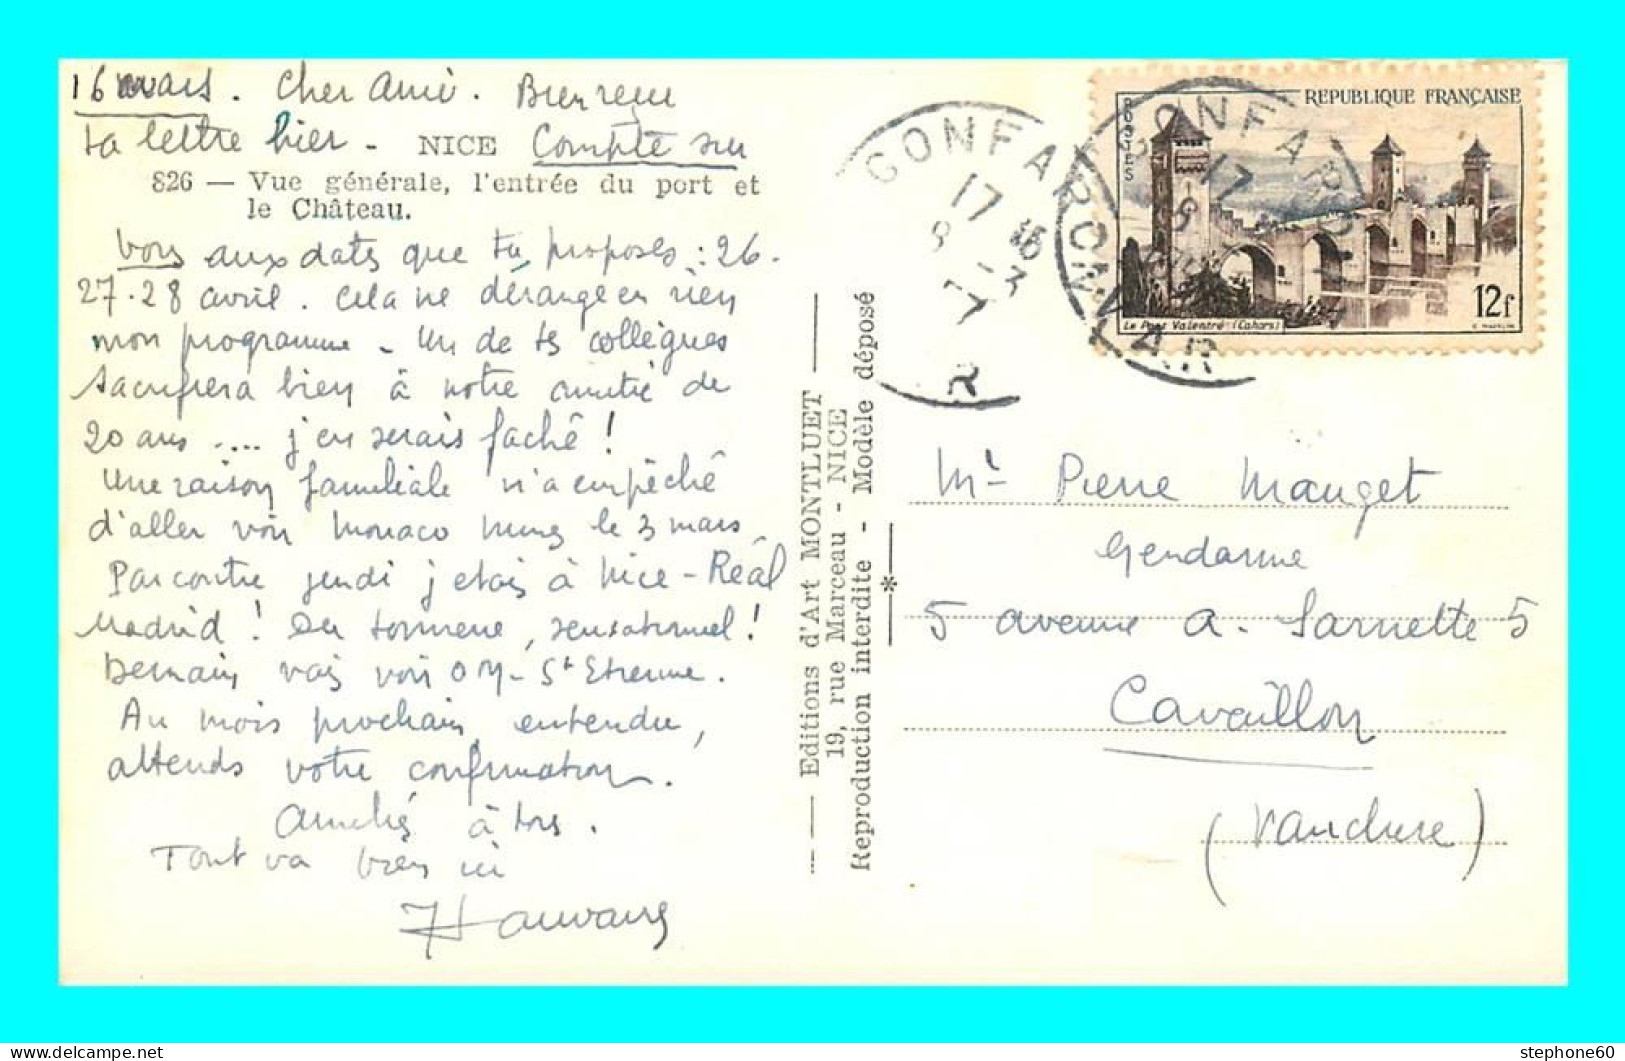 16 mars. Cher Ami. Bien reçu
ta lettre hier - NICE Compte sur
826 — Vue générale, l'entrée du port et
le Château.
vous aux dates que tu proposes : 26.
27.28 avril. Cela ne dérange en rien
mon programme. Un de ts collègues
sacrifiera bien à notre amitié de
20 ans .... j'en serais faché !
Une raison familiale m'a empêché
d'aller voir Monaco Nimes le 3 mars
Par contre jeudi j'étais à Nice - Réal
Madrid ! Du tonnerre, sensationnel !
Demain vais voir OM - St Etienne.
Au mois prochain, entendu,
attends votre confirmation.
Amitiés à tous.
Tout va bien ici
Editions d'Art MONTLUET
19, rue Marceau - NICE
Reproduction interdite - Modèle déposé
GONFARON
17 16
8 -3
-7
R
GONFARON
17
VAR
REPUBLIQUE FRANÇAISE
POSTES
12f
Le Pont Valentré (Cahors)
Mr Pierre Mauget
Gendarme
5 avenue A. Sarnette 5
Cavaillon
(Vaucluse)
stephone60